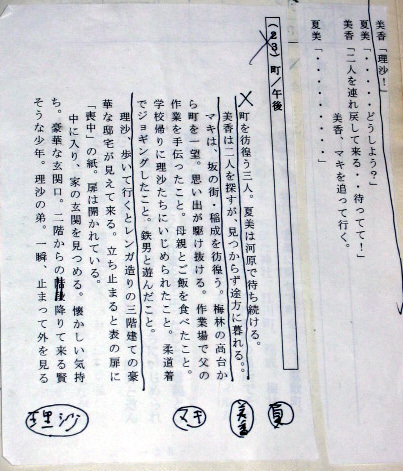 美香「理沙！」
夏美「・・・・・・どうしよう？」
美香「二人を連れ戻して来る・・待ってて！」
美香、マキを追って行く。
夏美「・・・・・・・・・・・・」
（２３）町／午後
町を彷徨う三人。夏美は河原で待ち続ける。
美香は二人を探すが、見つからず途方に暮れる。。
マキは、坂の街・稲成を彷徨う。梅林の高台か
ら町を一望。思い出が駆け抜ける。作業場で父の
作業を手伝ったこと。母親とご飯を食べたこと。
学校帰りに理沙たちにいじめられたこと。柔道着
でジョギングしたこと。鉄男と遊んだこと。
理沙、歩いて行くとレンガ造りの三階建ての豪
華な邸宅が見えて来る。立ち止まると表の扉に
「喪中」の紙。扉は開かれている。
中に入り、家の玄関を見つめる。懐かしい気持
ち。豪華な玄関口。二階からの階段降りて来る賢
そうな少年。理沙の弟。一瞬、止まって外を見る
夏
美香
マキ
理沙